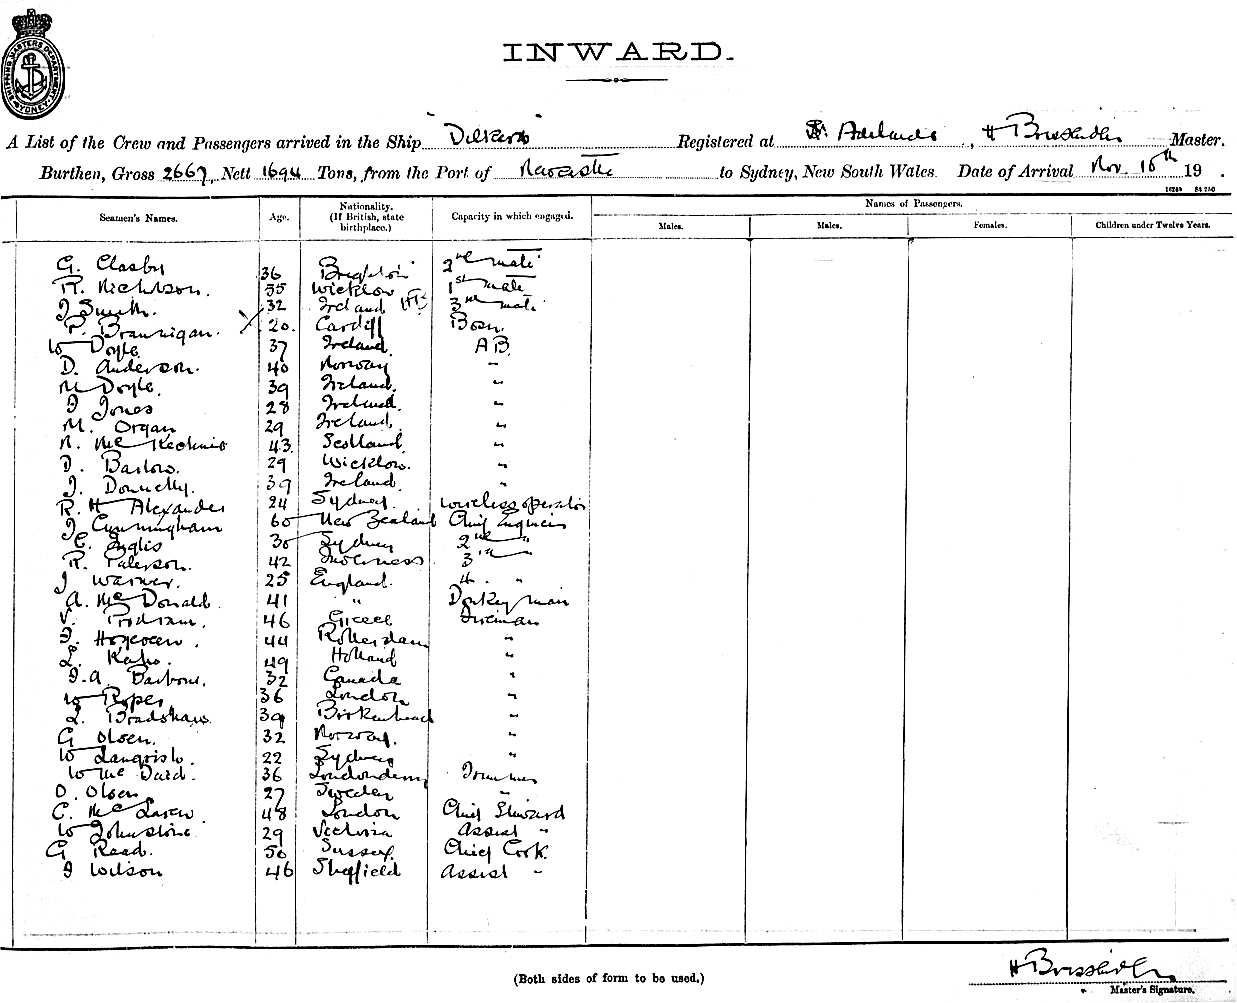 SHIPPING MASTERS DEPARTMENT SYDNEY
INWARD.
A List of the Crew and Passengers arrived in the Ship "Dilkera" Registered at Adelaide, H Master.
Burthen, Gross 2667, Nett 1694 Tons, from the Port of Newcastle to Sydney, New South Wales. Date of Arrival Nov. 16th 19 .
Seamen's Names. Age. Nationality. (If British, state birthplace.) Capacity in which engaged. Names of Passengers.
Males. Males. Females. Children under Twelve Years.
G. Clasby 36 Brighton 2nd mate
R. Nicholson. 35 Wicklow 1st mate
J Smith. 32 Ireland HB 3rd mate
P. Brannigan. 20. Cardiff Bosn.
W Doyle 37 Ireland. AB
D. Anderson. 40 Norway "
M Doyle. 39 Ireland. "
J Jones 28 Ireland. "
M. Organ 29 Ireland. "
N. McKechnie 43 Scotland "
D. Barlow. 29 Wicklow. "
J. Donnelly. 39 Ireland "
R. H Alexander 24 Sydney wireless operator
J Cunningham 60 New Zealand Chief Engineer
C. Inglis 30 Sydney 2nd "
R. Paterson. 42 Inverness 3rd "
J Warner. 25 England. 4. "
A. McDonald 41 " Donkeyman
V. 46 Greece Fireman
44 Rotterdam "
L. 49 Holland "
J. A. Barbour. 32 Canada "
W Roper 36 London "
L. Bradshaw 39 Birkenhead "
G Olsen. 32 Norway. "
W Langrish. 22 Sydney "
W McDaid. 36 Londonderry Trimmer
O. Olsen 27 Sweden "
C. McLaren 48 London Chief Steward
W Johnstone 29 Victoria Assist "
G Read. 50 Sussex Chief Cook
J Wilson 46 Sheffield Assist "
(Both sides of form to be used.)
Master's Signature.